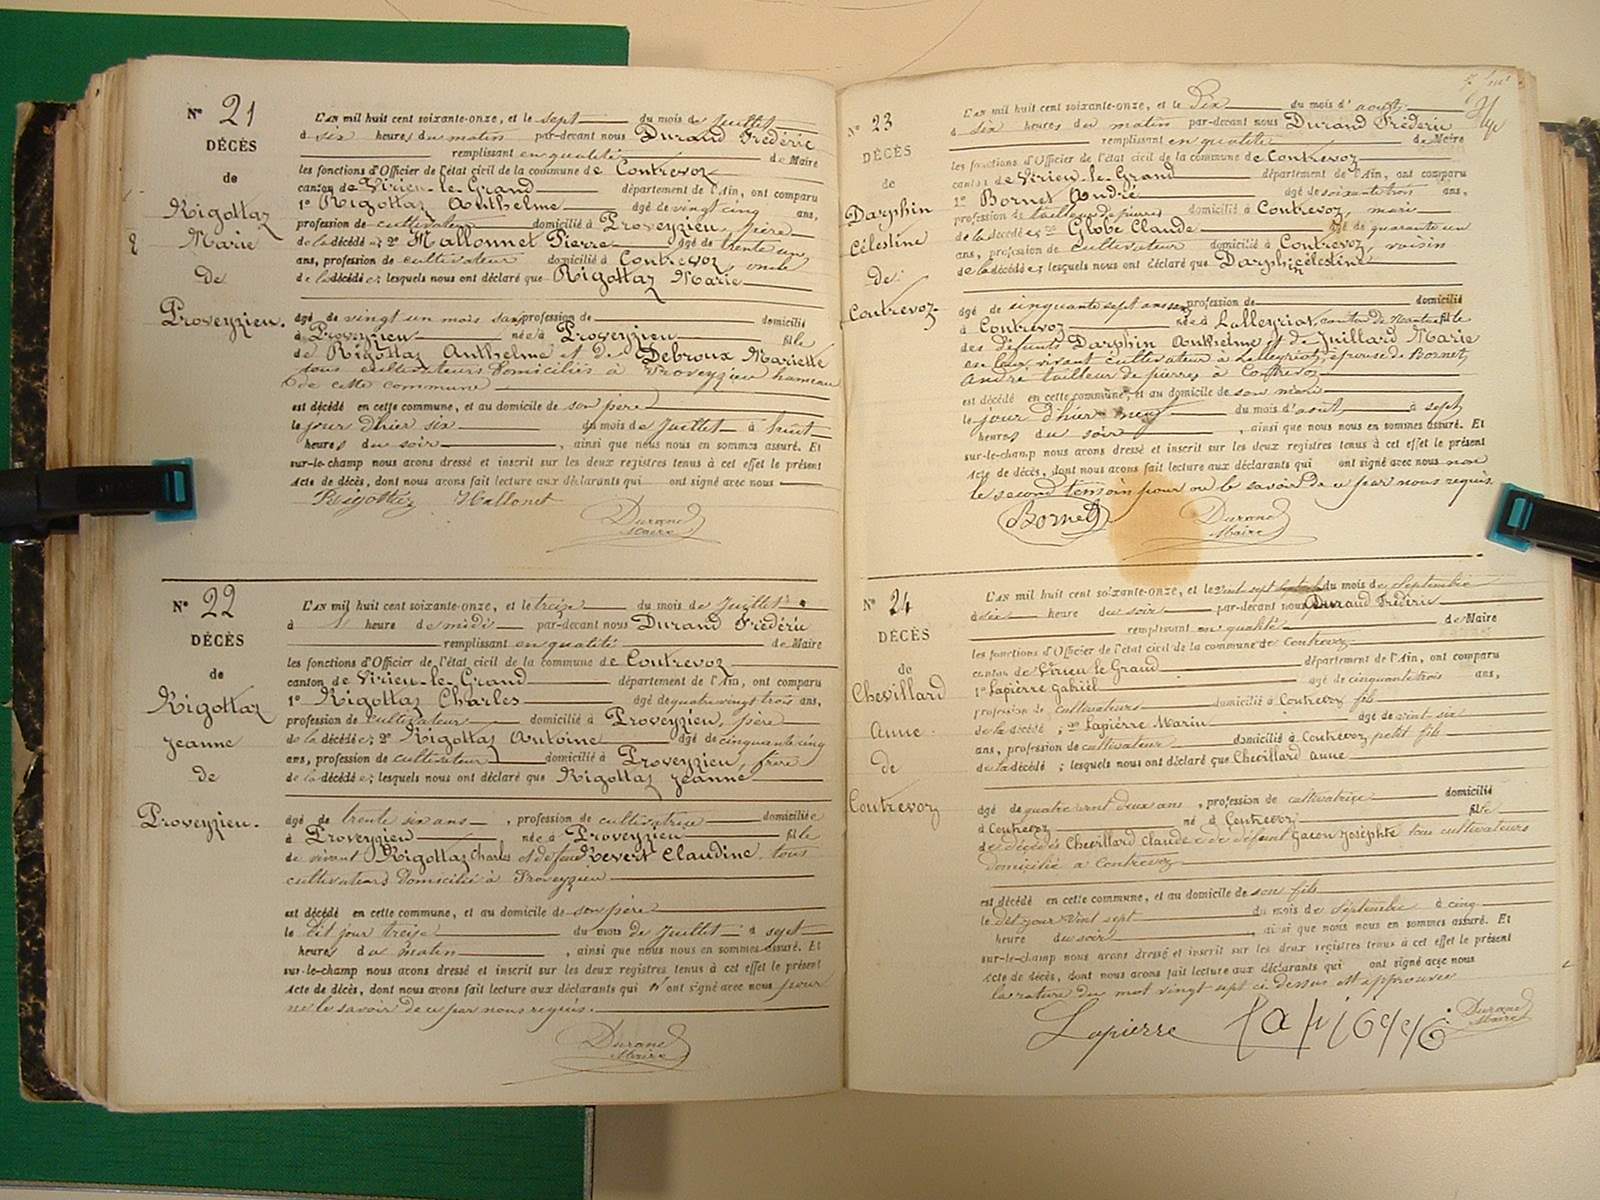 N° 21
DÉCÈS
de
Rigottaz
Marie
de
Proveyzieu.
L'AN mil huit cent soixante-onze, et le sept du mois de Juillet
à six heures du matin par-devant nous Durand Frédéric
remplissant en qualité de Maire
les fonctions d'Officier de l'état civil de la commune de Contrevoz
canton de Virieu-le-Grand département de l'Ain, ont comparu
1° Rigottaz Anthelme âgé de vingt cinq ans,
profession de cultivateur domicilié à Proveyzieu, père
de la décédée; 2° Mallonnet Pierre âgé de trente un
ans, profession de cultivateur domicilié à Contrevoz, oncle
de la décédée; lesquels nous ont déclaré que Rigottaz Marie
âgé de vingt un mois sans profession de domicilié
à Proveyzieu née à Proveyzieu fille
de Rigottaz Anthelme et de Debroux Mariette
tous cultivateurs domiciliés à Proveyzieu hameau
de cette commune
est décédé en cette commune, et au domicile de son père
le jour d'hier six du mois de Juillet à huit
heures du soir, ainsi que nous nous en sommes assuré. Et
sur-le-champ nous avons dressé et inscrit sur les deux registres tenus à cet effet le présent
Acte de décès, dont nous avons fait lecture aux déclarants qui ont signé avec nous
Rigottaz Mallonet
Durand
Maire
N° 22
DÉCÈS
de
Rigottaz
Jeanne
de
Proveyzieu.
L'AN mil huit cent soixante-onze, et le treize du mois de Juillet
à 1 heure de midi par-devant nous Durand Frédéric
remplissant en qualité de Maire
les fonctions d'Officier de l'état civil de la commune de Contrevoz
canton de Virieu-le-Grand département de l'Ain, ont comparu
1° Rigottaz Charles âgé de quatre vingt trois ans,
profession de cultivateur domicilié à Proveyzieu, père
de la décédée; 2° Rigottaz Antoine âgé de cinquante cinq
ans, profession de cultivateur domicilié à Proveyzieu, frère
de la décédée; lesquels nous ont déclaré que Rigottaz Jeanne
âgé de trente six ans, profession de cultivatrice domiciliée
à Proveyzieu née à Proveyzieu fille
de vivant Rigottaz Charles et de feue Revert Claudine tous
cultivateurs domicilié à Proveyzieu
est décédé en cette commune, et au domicile de son père
le dit jour treize du mois de Juillet à sept
heures du matin, ainsi que nous nous en sommes assuré. Et
sur-le-champ nous avons dressé et inscrit sur les deux registres tenus à cet effet le présent
Acte de décès, dont nous avons fait lecture aux déclarants qui n'ont signé avec nous pour
ne le savoir de ce par nous requis.
Durand
Maire
N° 23
DÉCÈS
de
Darphin
Célestine
de
Contrevoz
L'AN mil huit cent soixante-onze, et le Dix du mois d'août
à six heures du matin par-devant nous Durand Frédéric
remplissant en qualité de Maire
les fonctions d'Officier de l'état civil de la commune de Contrevoz
canton de Virieu-le-Grand département de l'Ain, ont comparu
1° Bornet André âgé de soixante trois ans,
profession de tailleur de pierres domicilié à Contrevoz, mari
de la décédée; 2° Globe Claude âgé de quarante un
ans, profession de cultivateur domicilié à Contrevoz, voisin
de la décédée; lesquels nous ont déclaré que Darphin célestine
âgé de cinquante sept ans profession de domicilié
à Contrevoz née à Lalleyriat, canton de Nantua fille
des défunts Darphin Anthelme et de Juillard Marie
en leur vivant cultivateur à Lalleyriat, épouse de Bornet
André tailleur de pierres à Contrevoz
est décédé en cette commune, et au domicile de son mari
le jour d'hier neuf du mois d'août à sept
heures du soir, ainsi que nous nous en sommes assuré. Et
sur-le-champ nous avons dressé et inscrit sur les deux registres tenus à cet effet le présent
Acte de décès, dont nous avons fait lecture aux déclarants qui ont signé avec nous non
le second témoin pour ne le savoir de ce par nous requis.
Bornet
Durand
Maire
N° 24
DÉCÈS
de
Chevillard
Anne
de
Contrevoz
L'AN mil huit cent soixante-onze, et le vint sept du mois de Septembre
à six heure du soir par-devant nous Durand Frédéric
remplissant en qualité de Maire
les fonctions d'Officier de l'état civil de la commune de Contrevoz
canton de Virieu le Grand département de l'Ain, ont comparu
1° Lapierre Gabriel âgé de cinquante trois ans,
profession de cultivateurs domicilié à Contrevoz fils
de la décédé; 2° Lapierre Marin âgé de vint six
ans, profession de cultivateur domicilié à Contrevoz petit fils
de la décédé; lesquels nous ont déclaré que Chevillard anne
âgé de quatre vint deux ans, profession de cultivatrice domicilié
à Contrevoz né à Contrevoz fille
de décédés Chevillard Claude e de défunt Gacon Josephte tous cultivateurs
domicilié a Contrevoz
est décédé en cette commune, et au domicile de son fils
le dit jour vint sept du mois de septembre à cinq
heure du soir, ainsi que nous nous en sommes assuré. Et
sur-le-champ nous avons dressé et inscrit sur les deux registres tenus à cet effet le présent
Acte de décès, dont nous avons fait lecture aux déclarants qui ont signé avec nous
la rature du mot vingt sept ci dessus est approuvée
Lapierre
Durand
Maire